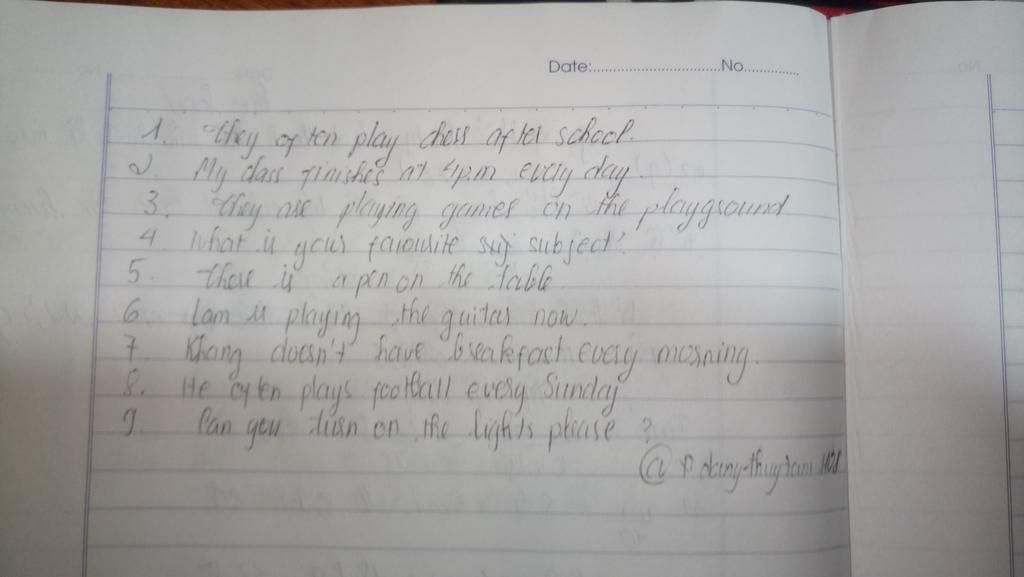 Date:..............................No.............
1. They often play chess after school.
2 My class finishes at 4p.m every day.
3. They are playing games on the playground
4. What is your favourite suj subject?
5. There is a pen on the table
6 Lam is playing the guitar now.
7. Khang doesn't have breakfast every morning.
8. He often plays football every Sunday
9. Can you turn on the lights please ?
@